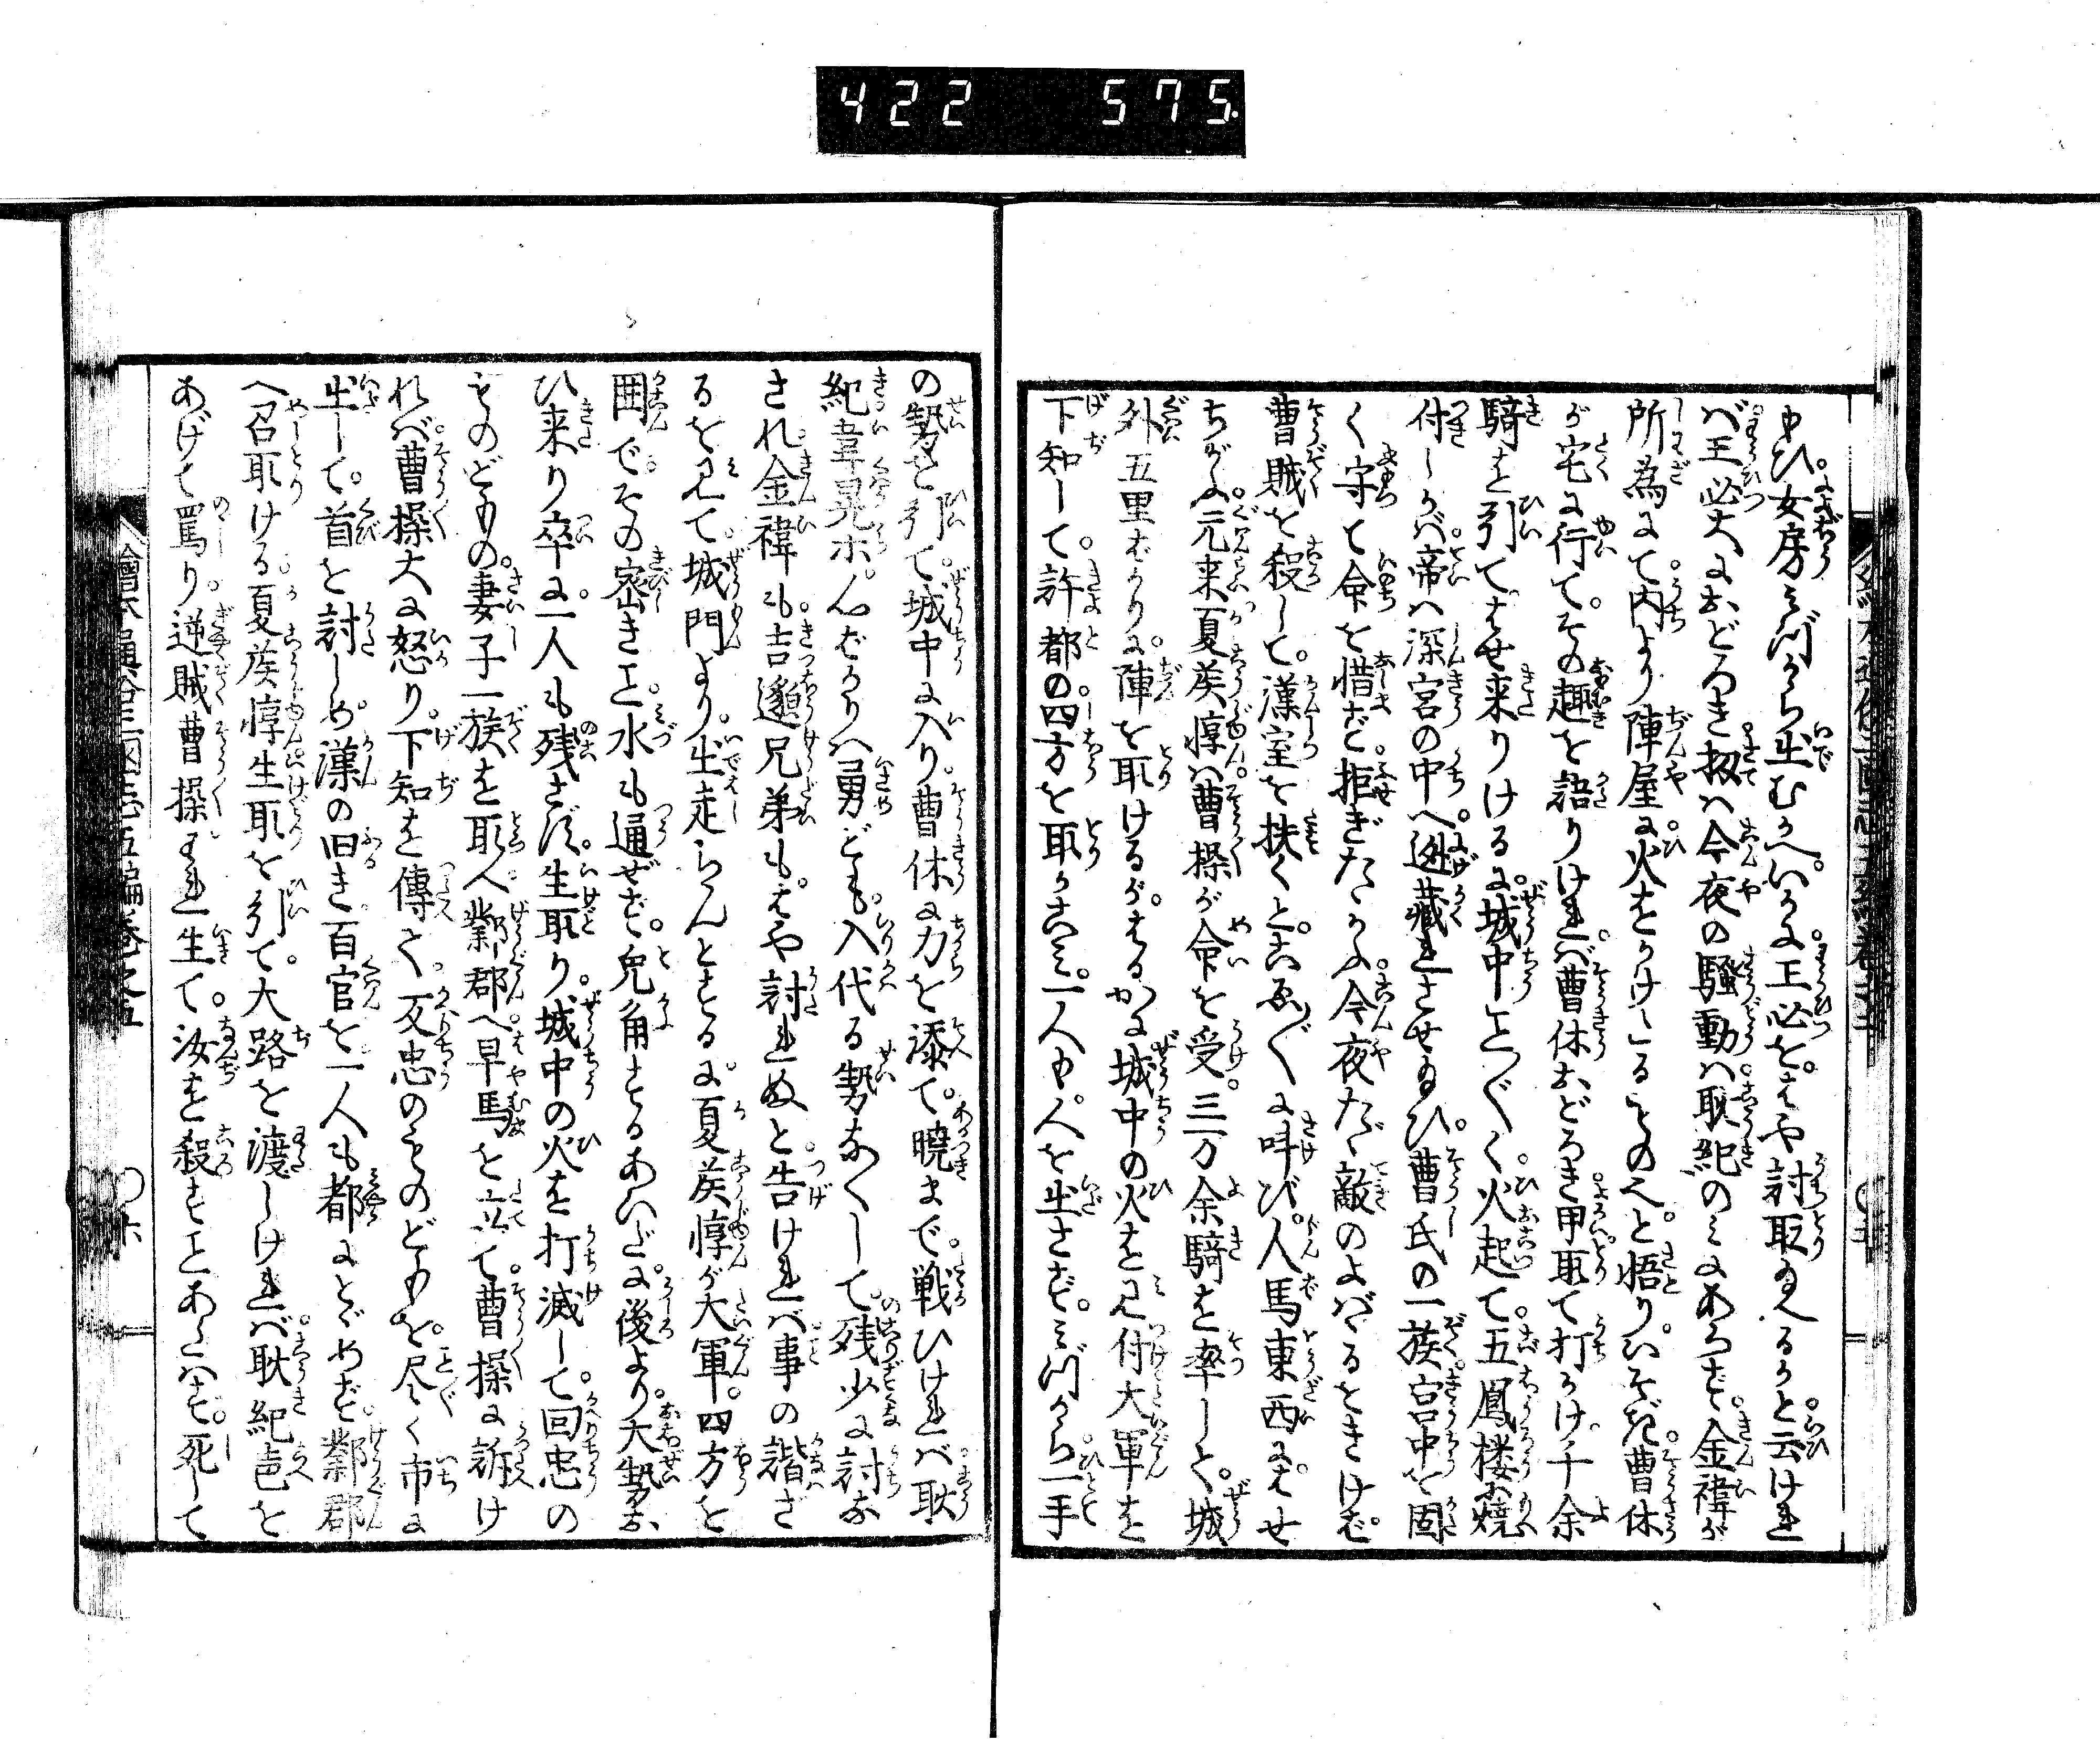 422 575.
ゆひ。女房みづから出むかへ。いかに王必を。はや討取給へるかと云けれ
バ王必大におどろき扨ハ今夜の騒動ハ耿紀のミにあらず。金禕が
所為にて内より陣屋に火をかけしるものへと悟り。いそぎ。曹休
が宅に行て。その趣を語りけれバ曹休おどろき甲取て打かけ千余
騎を引てはせ来りけるに。城中ことごとく火起て。五鳳楼に焼
付しかバ。帝ハ深宮の中へ。逃蔵れさせ給ひ。曹氏の一族宮中を固
く守て命を惜まず。拒ぎたゝかふ今夜たゞ敵のよばゝるをきけば。
曹賊を殺して。漢室を扶くと。こゑ〴〵に呼び。人馬東西にはせ
ちがふ。元来夏侯惇ハ曹操が命を受。三万余騎を率して。城
外五里ばかりに。陣を取けるが。はるかに城中の火を見付大軍を
下知して。許都の四方を取かこミ。一人も。人を出さず。みづから一手
の勢を引て。城中に入り。曹休に力を添て。暁まで。戦ひけれバ耿
紀韋晃ホ。心ばかりハ勇ども。入代る勢なくして。残少に討な
され。金禕も。吉邈兄弟も。はや討れぬと告けれバ事の諧ざ
るを見て。城門より。出走らんとするに。夏侯惇が大軍。四方を
囲んでその密きこと。水も通ぜず。兎角するあいだに。後より。大勢お
ひ来り卒に一人も残さず。生取り。城中の火を打滅して。回忠の
ものどもの。妻子一族を取へ鄴郡へ早馬を立て。曹操に訴け
れバ曹操大に怒り。下知を傳て。反忠のものどもを。尽く市に
出して。首を討しめ。漢の旧き。百官を一人も都にとゞめず。鄴郡
へ召取ける。夏侯惇生取を引て。大路を渡しけれバ。耿紀声を
あげて罵り。逆賊曹操。われ生て。汝を殺すことあたハず。死して
繪本通俗三國志五編巻之五